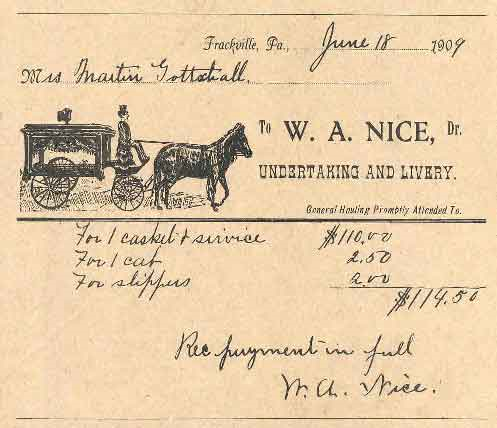 Frackville, Pa., June 18 1909
Mrs Martin Gottshall.
To W. A. NICE, Dr.
UNDERTAKING AND LIVERY.
General Hauling Promptly Attended To.
For 1 casket & service $110.00
For 1 cat 2.50
For slippers 2.00
$114.50
Rec payment in full
W. A. Nice.